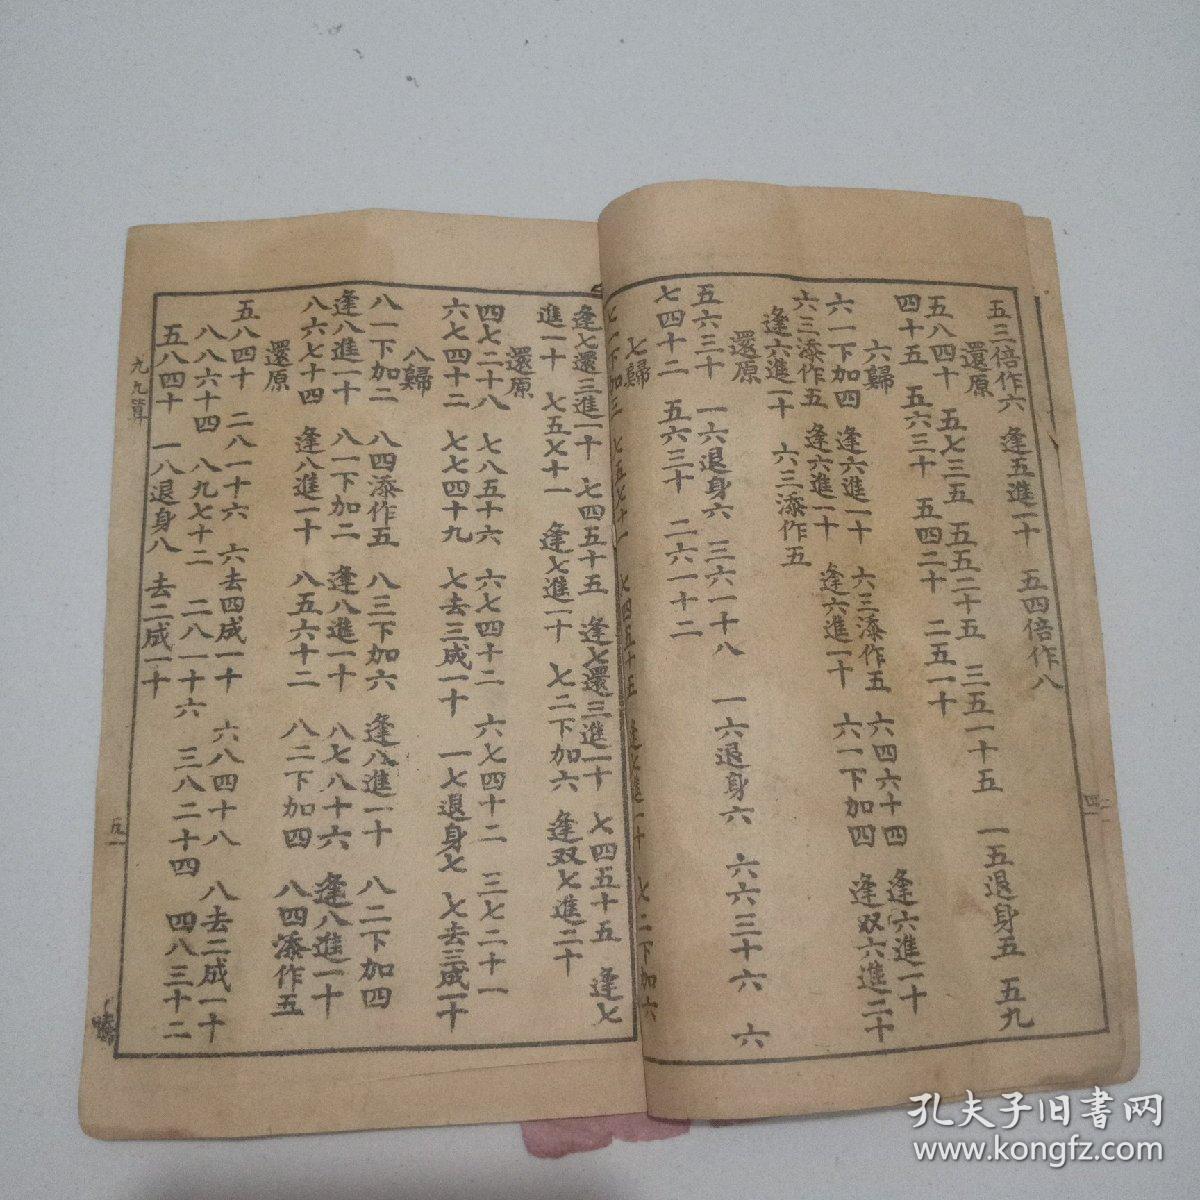 五三倍作六　逢五進一十　五四倍作八
還原
五八四十　五七三五　五五二十五　三五一十五　一五退身五　五九
四十五　五六三十　五四二十　二五一十
六歸
六一下加四　逢六進一十　六三添作五　六四六十四　逢六進一十
六三添作五　逢六進一十　逢六進一十　六一下加四　逢双六進二十
逢六進一十　六三添作五
還原
五六三十　一六退身六　三六一十八　一六退身六　六六三十六　六
七四十二　五六三十　二六一十二
七歸
七一下加三　七五七十一　七四五十五　逢七進一十　七二下加六
逢七還三進一十　七四五十五　逢七還三進一十　七四五十五　逢七
進一十　七五七十一　逢七進一十　七二下加六　逢双七進二十
還原
四七二十八　七八五十六　六七四十二　六七四十二　三七二十一
六七四十二　七七四十九　七去三成一十　一七退身七　七去三成一十
八歸
八一下加二　八四添作五　八三下加六　逢八進一十　八二下加四
逢八進一十　八一下加二　逢八進一十　八七八十六　逢八進一十
八六七十四　逢八進一十　八五六十二　八二下加四　八四添作五
還原
五八四十　二八一十六　六去四成一十　六八四十八　八去二成一十
八八六十四　八九七十二　二八一十六　三八二十四　四八三十二
五八四十　一八退身八　去二成一十
九九算
五
四
二
孔夫子旧書网
www.kongfz.com